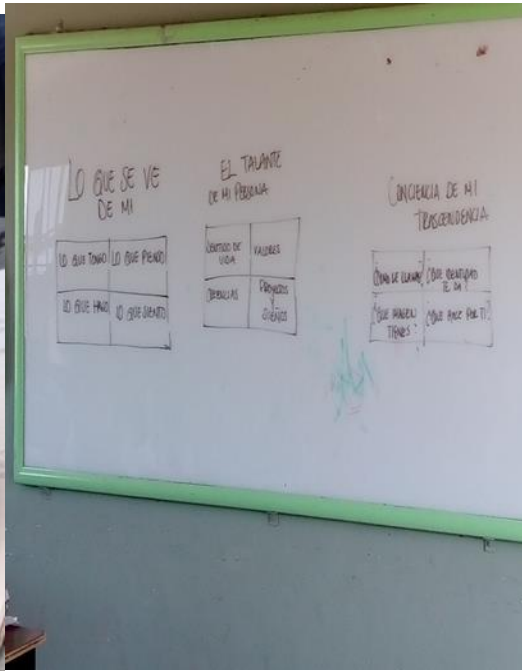 LO QUE SE VE
DE MI
LO QUE TENGO
LO QUE PIENSO
LO QUE HAGO
LO QUE SIENTO
EL TALANTE
DE MI PERSONA
SENTIDO DE
VIDA
VALORES
CREENCIAS
PROYECTOS
Y
SUEÑOS
CONCIENCIA DE MI
TRASCENDENCIA
¿QUE IDENTIDAD
TE DA
¿QUE IMAGEN
TIENES
¿QUE HACE POR TI?